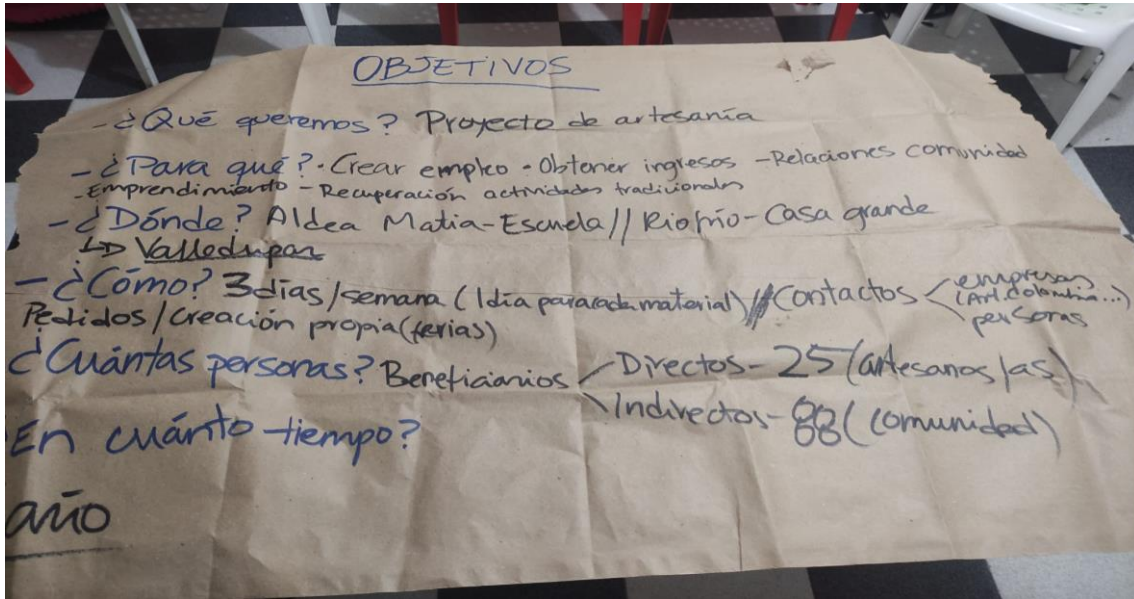 OBJETIVOS
- ¿Qué queremos? Proyecto de artesanía
- ¿Para qué? · Crear empleo · Obtener ingresos - Relaciones comunidad
- Emprendimiento - Recuperación actividades tradicionales
- ¿Dónde? Aldea Matia - Escuela // Riofrío - Casa grande
↳ Valledupar
- ¿Cómo? 3 días/semana (1 día para cada material) // Contactos < empresas (Art. Colombia...)
personas
Pedidos / creación propia (ferias)
¿Cuántas personas? Beneficiarios < Directos - 25 (artesanos/as)
Indirectos - 88 (comunidad)
En cuánto tiempo?
año